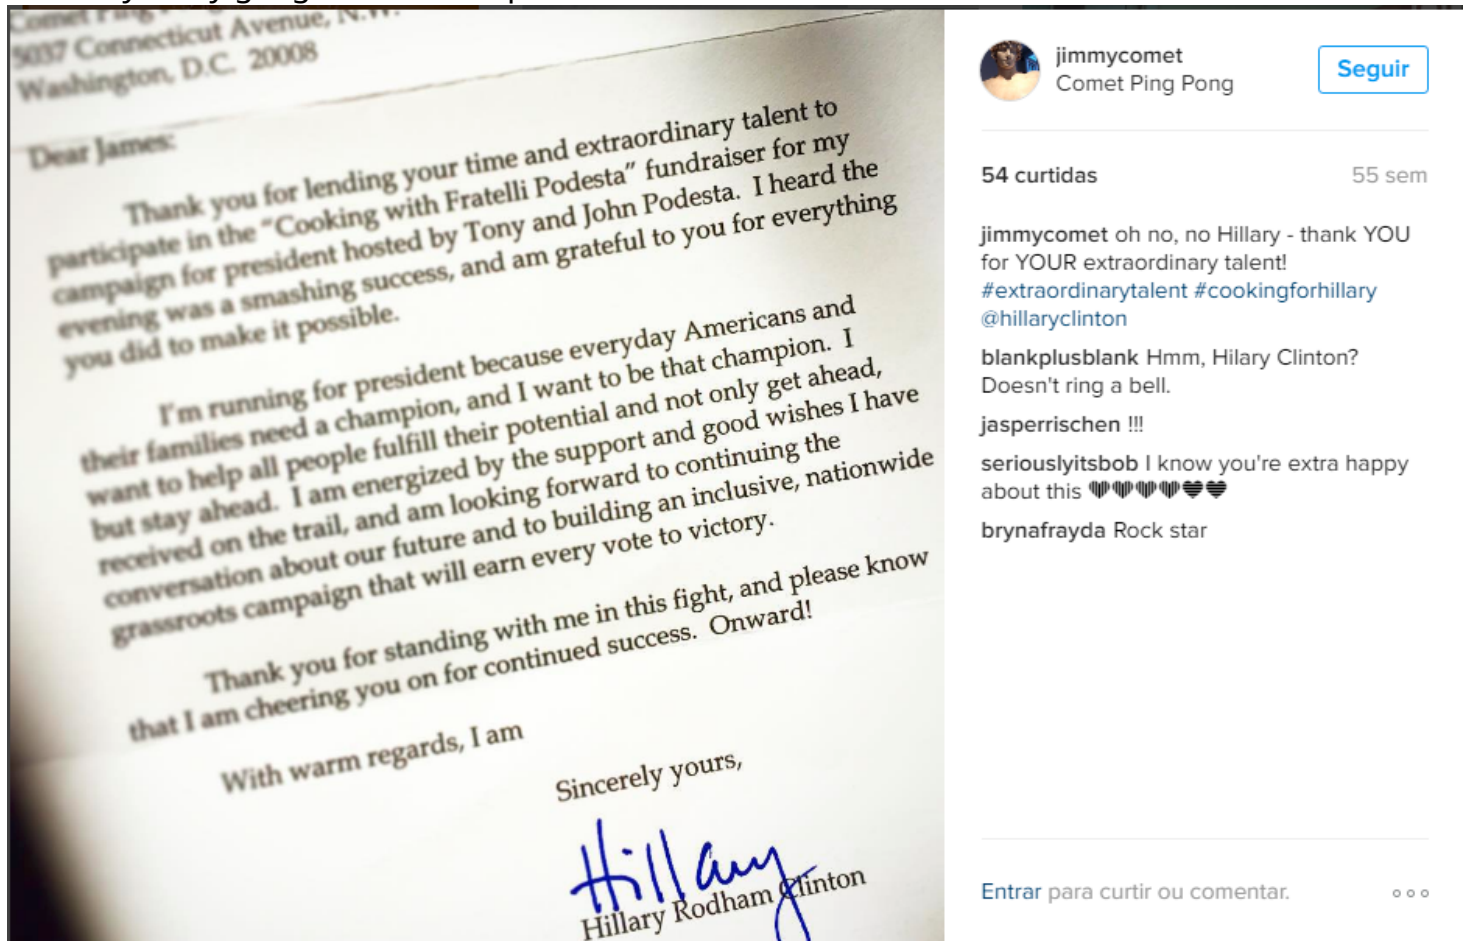 5037 Connecticut Avenue, N.W.
Washington, D.C. 20008
Dear James:
Thank you for lending your time and extraordinary talent to
participate in the "Cooking with Fratelli Podesta" fundraiser for my
campaign for president hosted by Tony and John Podesta. I heard the
evening was a smashing success, and am grateful to you for everything
you did to make it possible.
I'm running for president because everyday Americans and
their families need a champion, and I want to be that champion. I
want to help all people fulfill their potential and not only get ahead,
but stay ahead. I am energized by the support and good wishes I have
received on the trail, and am looking forward to continuing the
conversation about our future and to building an inclusive, nationwide
grassroots campaign that will earn every vote to victory.
Thank you for standing with me in this fight, and please know
that I am cheering you on for continued success. Onward!
With warm regards, I am
Sincerely yours,
Hillary
Hillary Rodham Clinton
jimmycomet
Comet Ping Pong
Seguir
54 curtidas
55 sem
jimmycomet oh no, no Hillary - thank YOU
for YOUR extraordinary talent!
#extraordinarytalent #cookingforhillary
@hillaryclinton
blankplusblank Hmm, Hilary Clinton?
Doesn't ring a bell.
jasperrischen !!!
seriouslyitsbob I know you're extra happy
about this
brynafrayda Rock star
Entrar para curtir ou comentar.